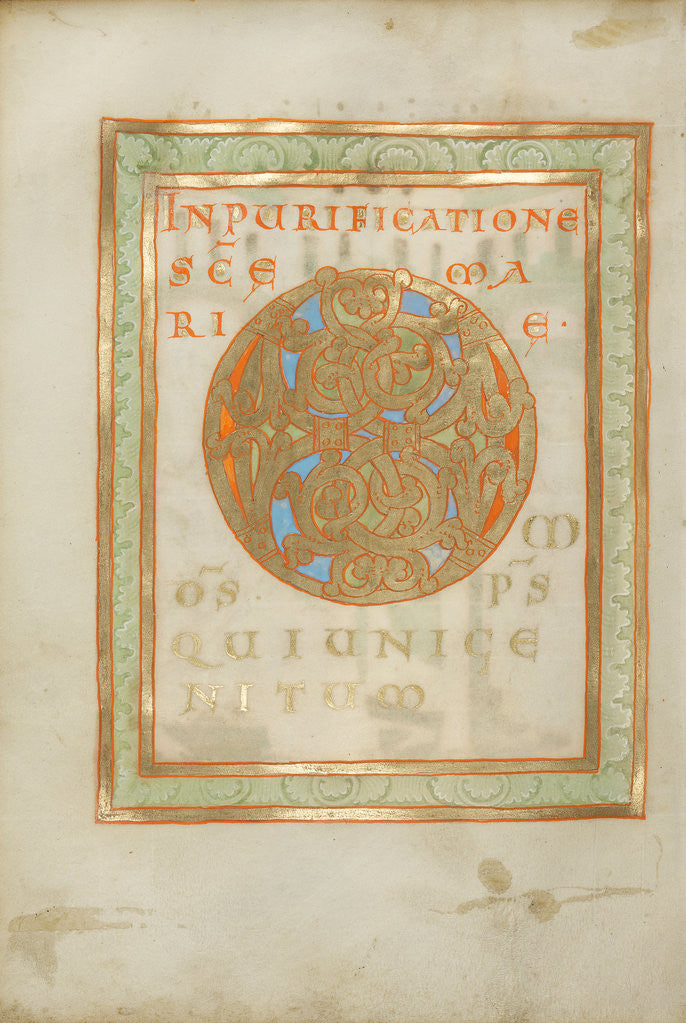 INPURIFICATIONE
SC̄E MA
RI E·
O M
P̄S
O̅S
QUIUNIGE
NITUM